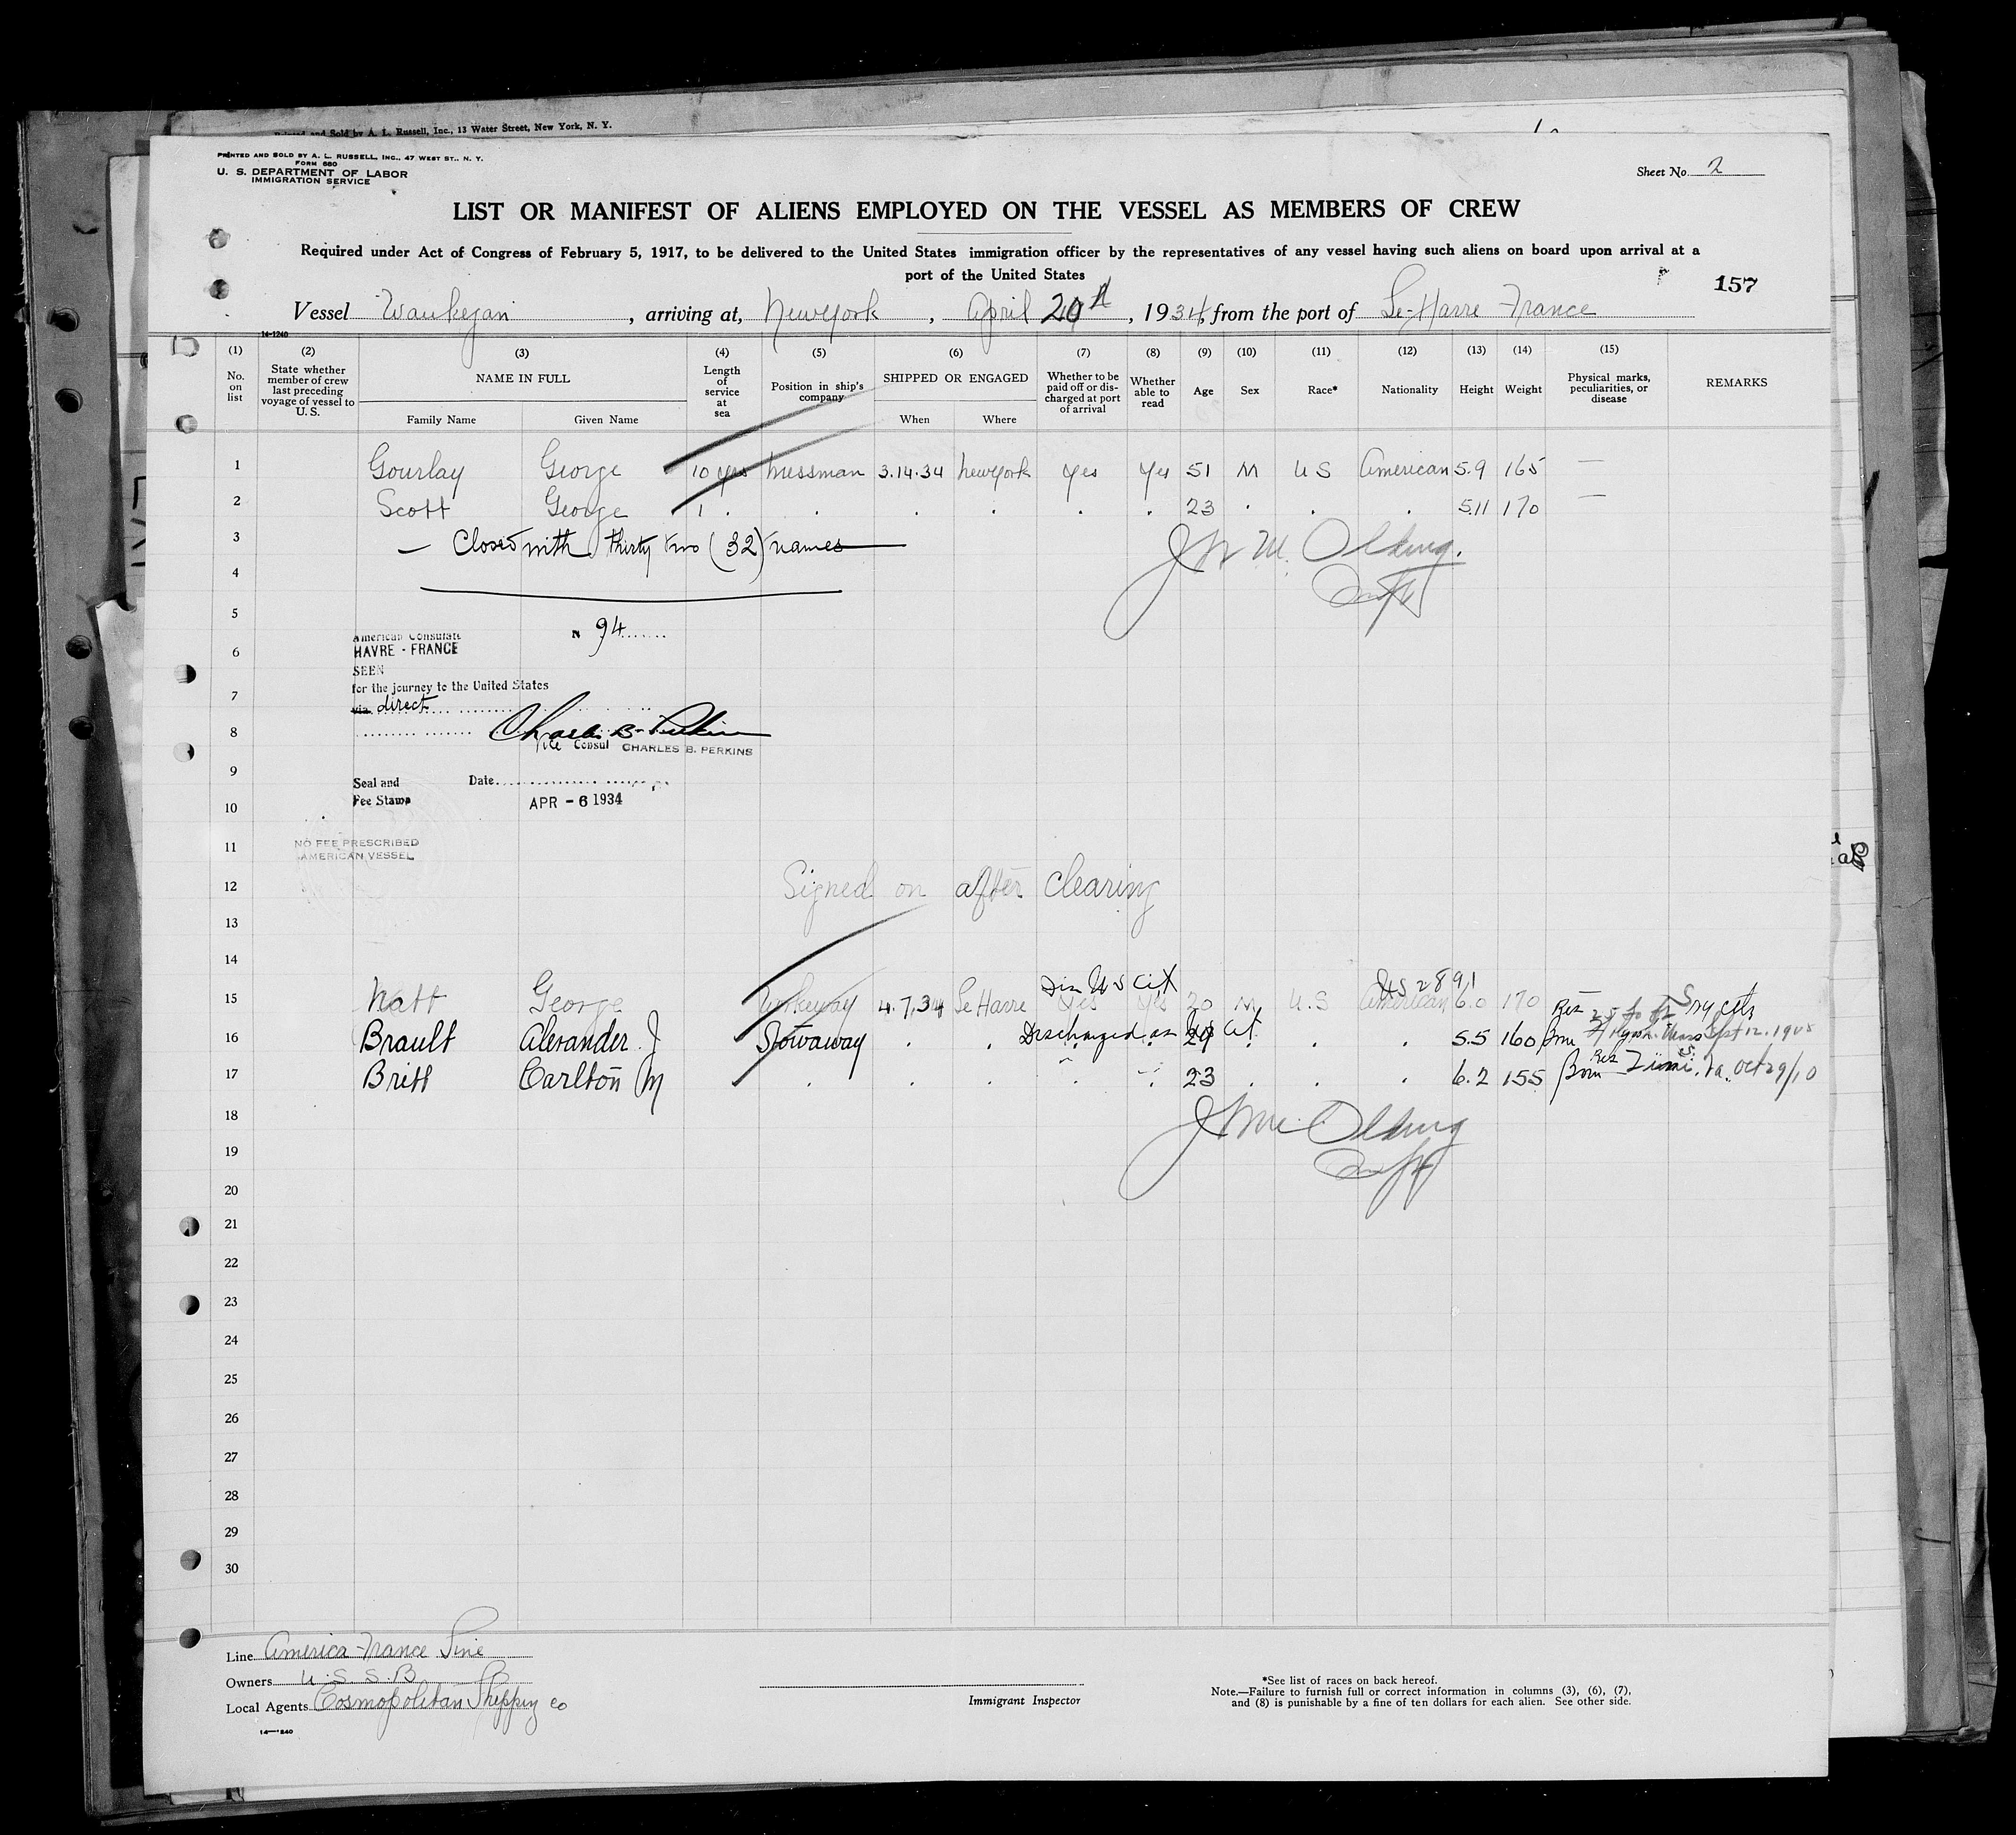 Printed and Sold by A. L. Russell, Inc., 13 Water Street, New York, N. Y.
PRINTED AND SOLD BY A. L. RUSSELL, INC., 47 WEST ST., N. Y.
FORM 680
U. S. DEPARTMENT OF LABOR
IMMIGRATION SERVICE
Sheet No. 2
LIST OR MANIFEST OF ALIENS EMPLOYED ON THE VESSEL AS MEMBERS OF CREW
Required under Act of Congress of February 5, 1917, to be delivered to the United States immigration officer by the representatives of any vessel having such aliens on board upon arrival at a
port of the United States
157
Vessel Waukegan, arriving at, New York, April 20th, 1934, from the port of Le-Havre France
14-1240
(1) No. on list
(2) State whether member of crew last preceding voyage of vessel to U. S.
(3) NAME IN FULL Family Name Given Name
(4) Length of service at sea
(5) Position in ship's company
(6) SHIPPED OR ENGAGED When Where
(7) Whether to be paid off or discharged at port of arrival
(8) Whether able to read
(9) Age
(10) Sex
(11) Race*
(12) Nationality
(13) Height
(14) Weight
(15) Physical marks, peculiarities, or disease
REMARKS
1 Gourlay George 10 yrs messman 3.14.34 New York Yes Yes 51 M US American 5.9 165 —
2 Scott George 1 . . . . . . 23 . . . 5.11 170 —
3 — Closed with thirty two (32) names —
4
5
N 94
American Consulate
6 HAVRE - FRANCE
SEEN
7 for the journey to the United States
via direct
8
Charles B. Perkins
Vice Consul CHARLES B. PERKINS
9
Seal and Date
Fee Stamp APR - 6 1934
10
11 NO FEE PRESCRIBED
AMERICAN VESSEL
12 Signed on after clearing
13
14
Dis U S Cit
15 Natt George Workeway 4.7.34 Le Havre Yes Yes 20 M U.S American 6.0 170
16 Brault Alexander J Stowaway . . Discharged as US Cit. . . . 5.5 160
17 Britt Carlton M . . . . . 23 . . . 6.2 155 Born Oct 29/10
18
19
20
21
22
23
24
25
26
27
28
29
30
Line America France Line
Owners U.S.S.B
Local Agents Cosmopolitan Shipping Co
14—1240
Immigrant Inspector
*See list of races on back hereof.
Note.—Failure to furnish full or correct information in columns (3), (6), (7),
and (8) is punishable by a fine of ten dollars for each alien. See other side.